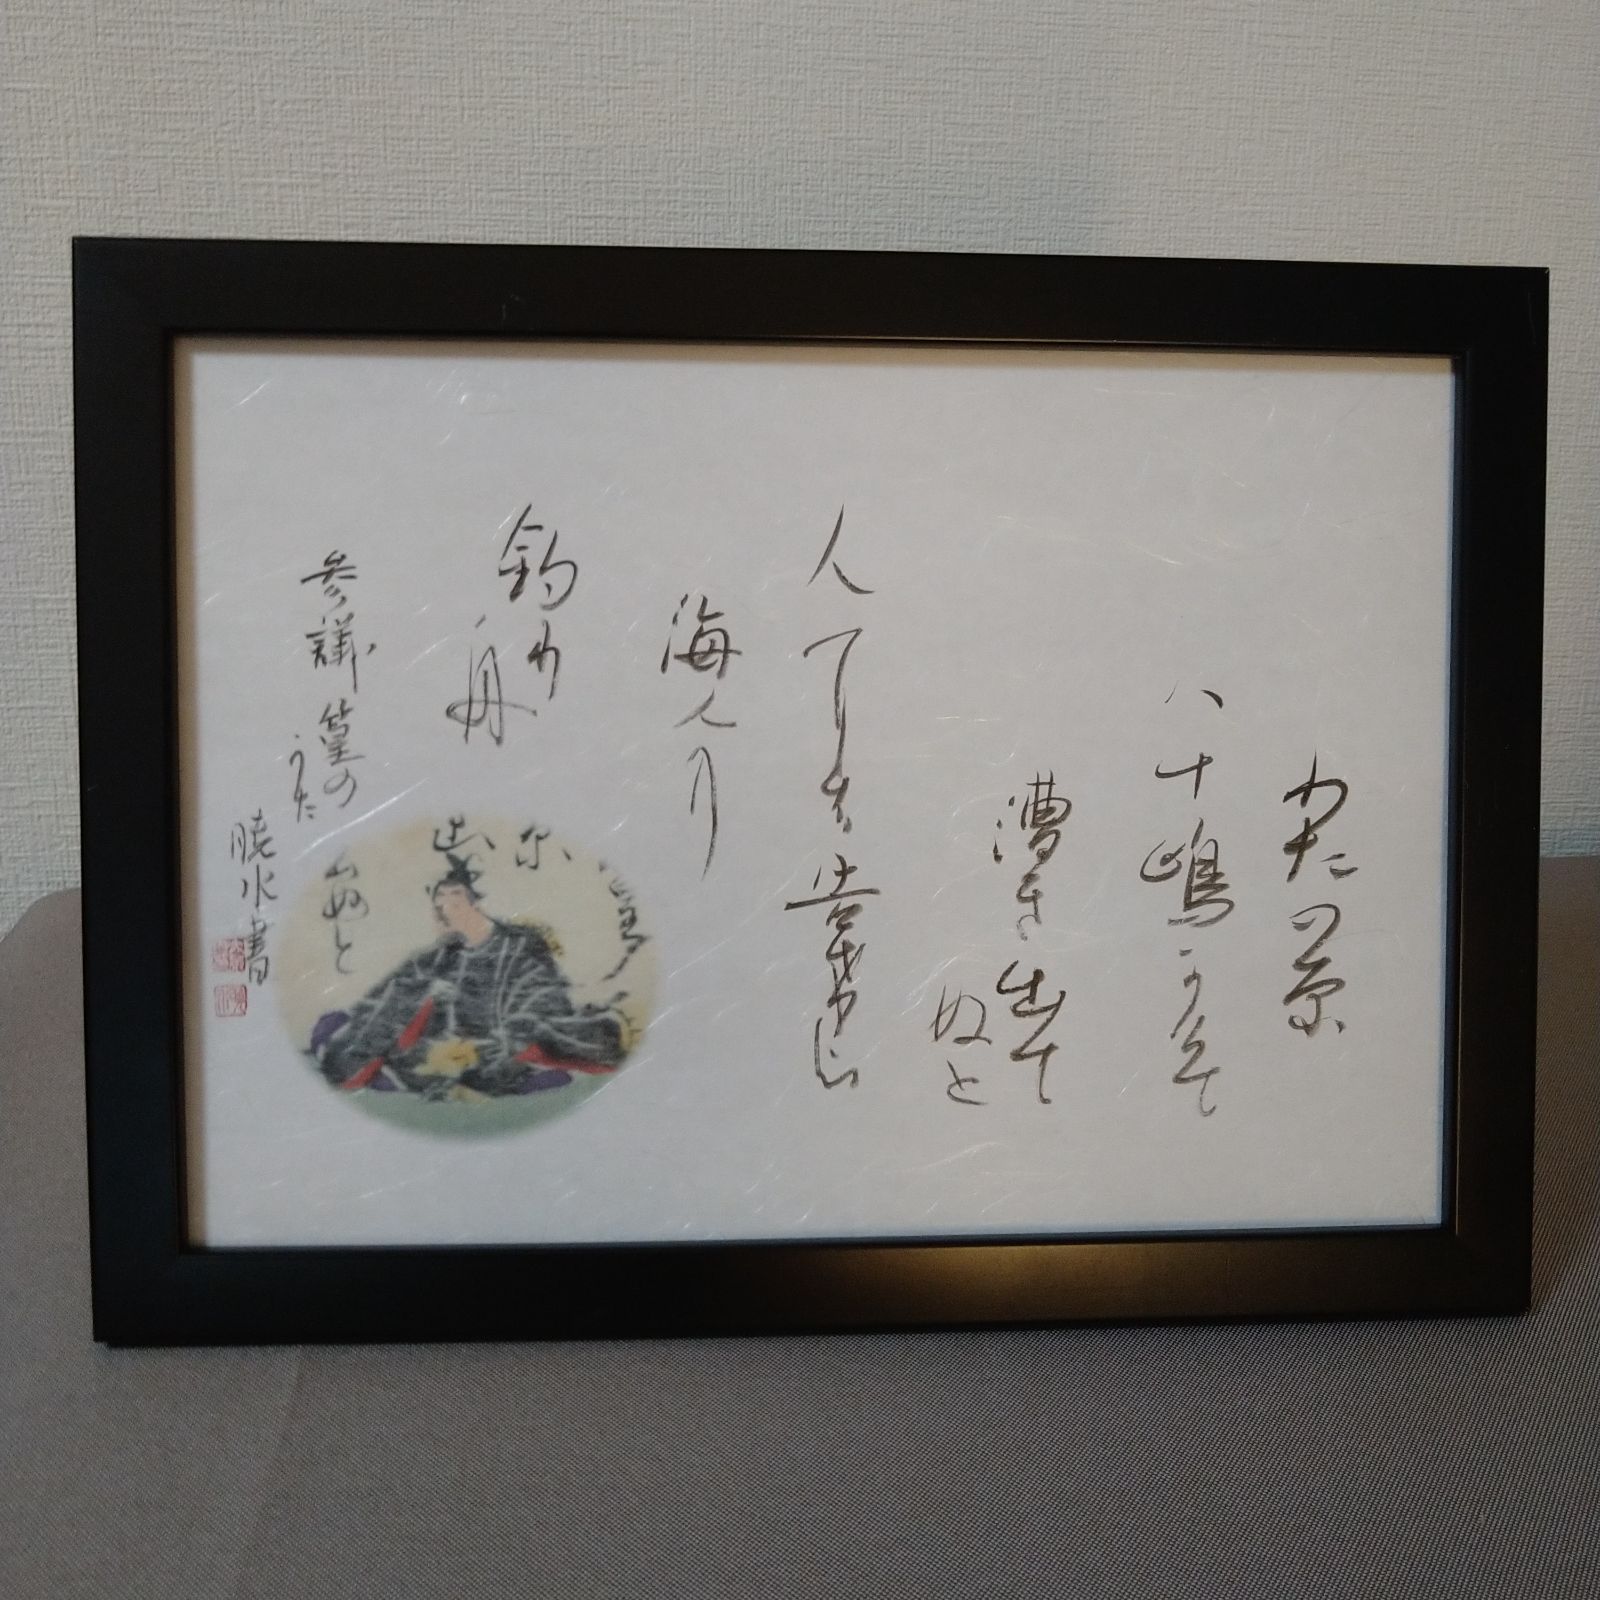 わたの原
八十嶋かけて
漕き出て
ぬと
人にハ告希よ
海人の
釣り
舟
参議篁の
うた
暁水書